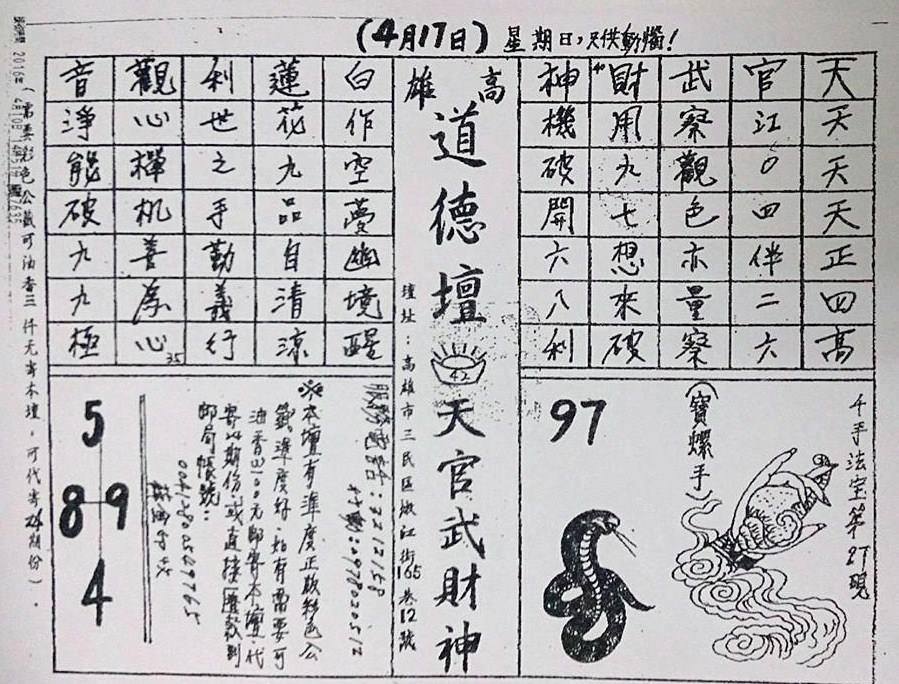 (4月17日)星期日,只供動慵!
天天天天正四高
官江0四伴二六
武察觀色亦量察
財用九七想來破
神機破開六八利
高雄
道德壇
42
天官武財神
壇址:高雄市三民區嫩江街165巷12號
白作空夢幽境醒
蓮花九品自清涼
利世之手勤義行
觀心禪机善為心
35
音淨能破九九極
千手法宝第27現
(寶螺手)
97
服務電話:3212158
0978020512
※本壇有準度正版彩色公
籤準度好.如有需要可
油香3100元即寄本壇.代
寄24期份.或直接匯款到
郵局帳號:
5
8 9
4
(需要彩色公籤可油香三仟元寄本壇,可代寄24期份).